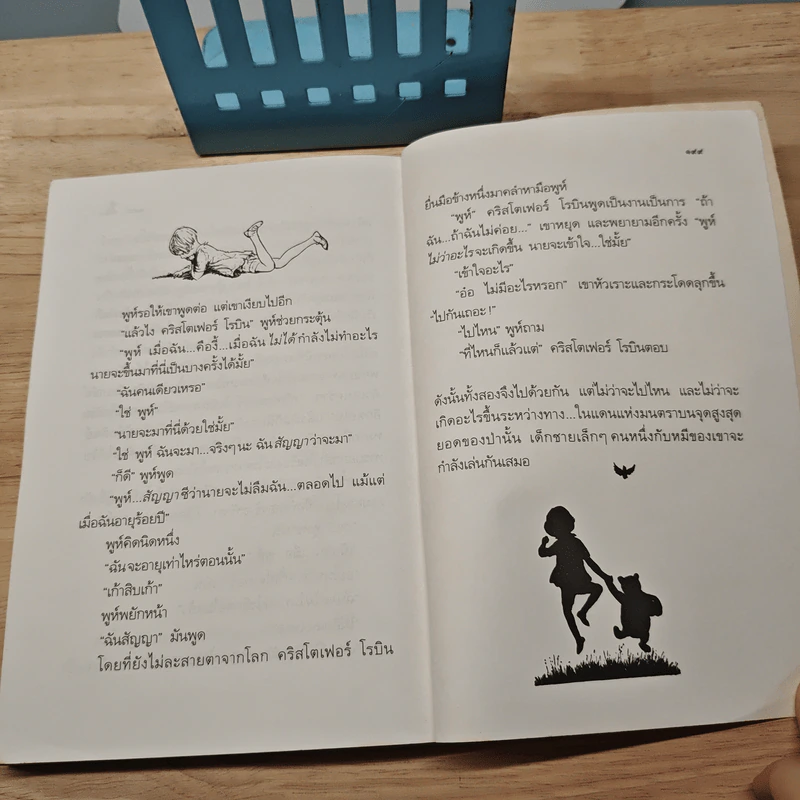 พูห์รอให้เขาพูดต่อ แต่เขาเงียบไปอีก
“แล้วไง คริสโตเฟอร์ โรบิน” พูห์ช่วยกระตุ้น
“พูห์ เมื่อฉัน...คืองี้...เมื่อฉัน ไม่ได้ กำลังไม่ทำอะไร
นายจะขึ้นมาที่นี่เป็นบางครั้งได้มั้ย”
“ฉันคนเดียวเหรอ”
“ใช่ พูห์”
“นายจะมาที่นี่ด้วยใช่มั้ย”
“ใช่ พูห์ ฉันจะมา...จริงๆ นะ ฉัน สัญญา ว่าจะมา”
“ก็ดี” พูห์พูด
“พูห์...สัญญา ซิว่านายจะไม่ลืมฉัน...ตลอดไป แม้แต่
เมื่อฉันอายุร้อยปี”
พูห์คิดนิดหนึ่ง
“ฉัน จะอายุเท่าไหร่ตอนนั้น”
“เก้าสิบเก้า”
พูห์พยักหน้า
“ฉันสัญญา” มันพูด
โดยที่ยังไม่ละสายตาจากโลก คริสโตเฟอร์ โรบิน
๑๙๙
ยื่นมือข้างหนึ่งมาคลำหามือพูห์
“พูห์” คริสโตเฟอร์ โรบินพูดเป็นงานเป็นการ “ถ้า
ฉัน...ถ้าฉันไม่ค่อย...” เขาหยุด และพยายามอีกครั้ง “พูห์
ไม่ว่าอะไรจะเกิดขึ้น นายจะเข้าใจ...ใช่มั้ย”
“เข้าใจอะไร”
“อ๋อ ไม่มีอะไรหรอก” เขาหัวเราะและกระโดดลุกขึ้น
“ไปกันเถอะ!”
“ไปไหน” พูห์ถาม
“ที่ไหนก็แล้วแต่” คริสโตเฟอร์ โรบินตอบ
ดังนั้นทั้งสองจึงไปด้วยกัน แต่ไม่ว่าจะไปไหน และไม่ว่าจะ
เกิดอะไรขึ้นระหว่างทาง...ในแดนแห่งมนตราบนจุดสูงสุด
ยอดของป่านั้น เด็กชายเล็กๆ คนหนึ่งกับหมีของเขาจะ
กำลังเล่นกันเสมอ